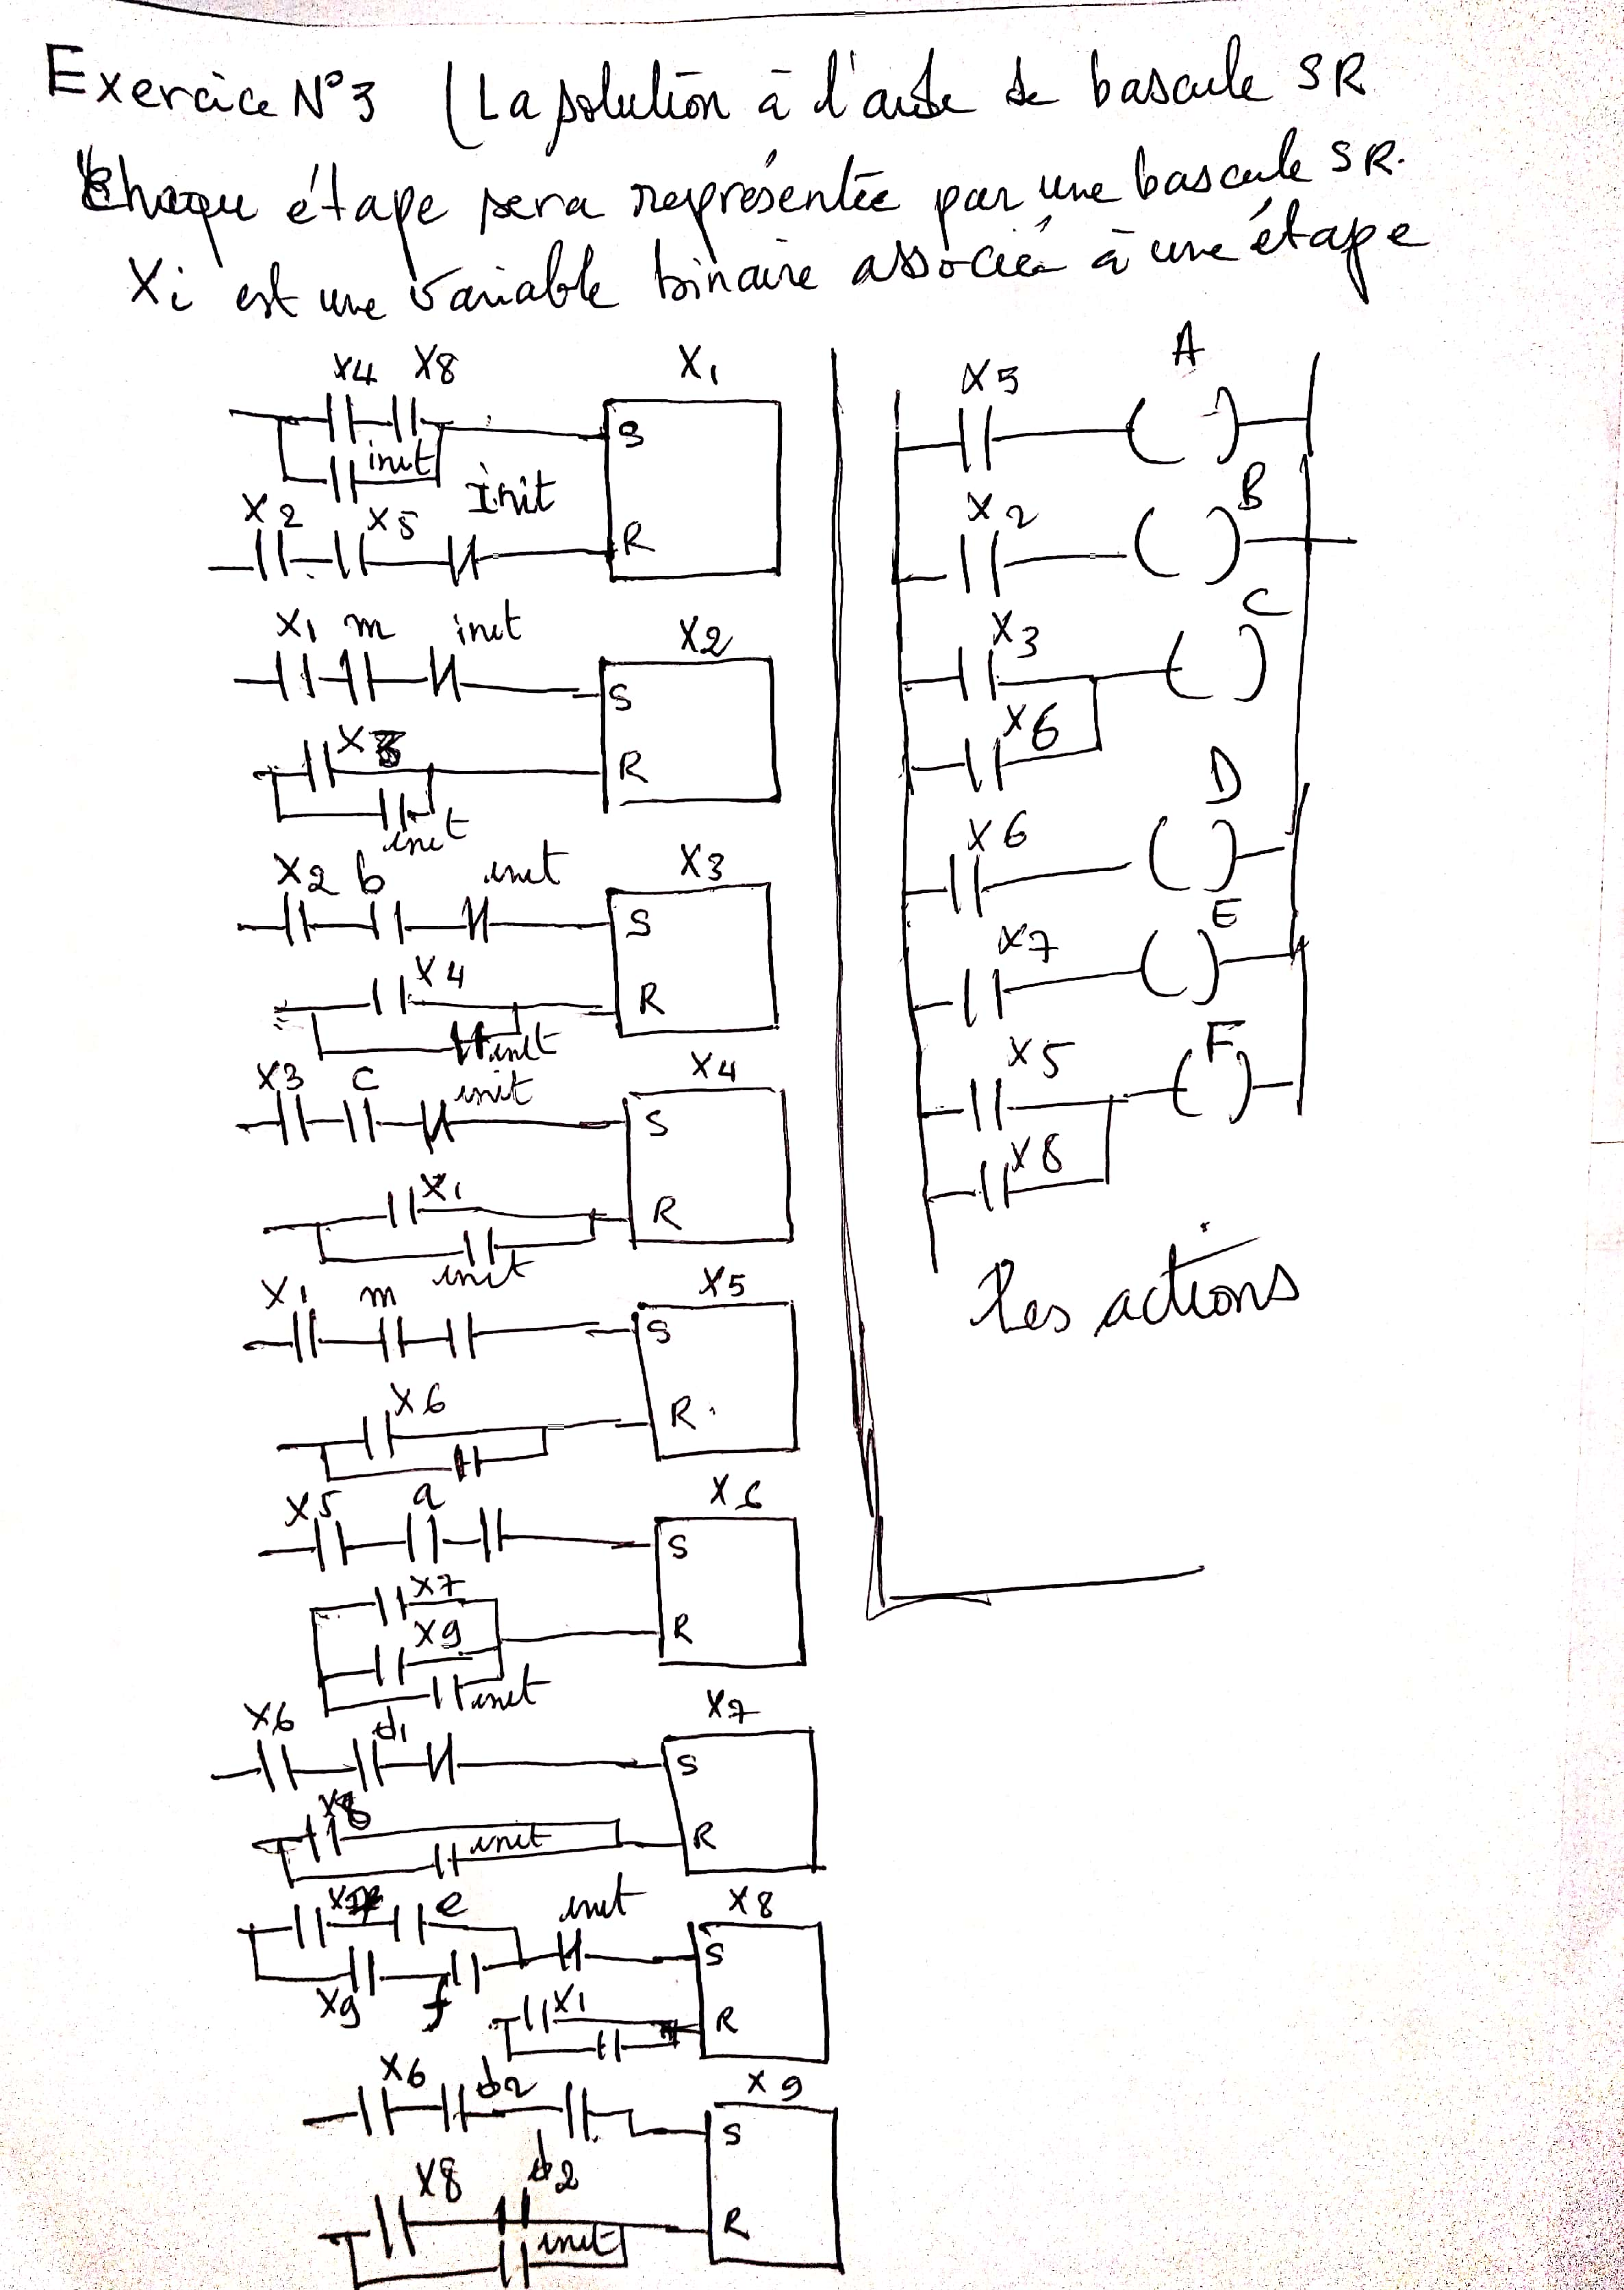 Exercice N°3 (La solution à l'aide de bascule SR
Chaque étape sera représentée par une bascule SR.
Xi est une variable binaire associée à une étape
X4 X8 X1
S
init
Init
X2 X5
R
X1 m init X2
S
R
init
X2 b init X3
S
X4
R
init
X3 C init X4
S
X1
R
init
X1 m X5
S
X6
R
X5 a X6
S
X7
X9
R
init
X6 d1 X7
S
X8
init R
e init X8
S
X9 f
X1
R
X6 d2 X9
S
X8 d2
R
init
X5 A
X2 B
X3 C
X6
X6 D
X7 E
X5 F
X8
Les actions